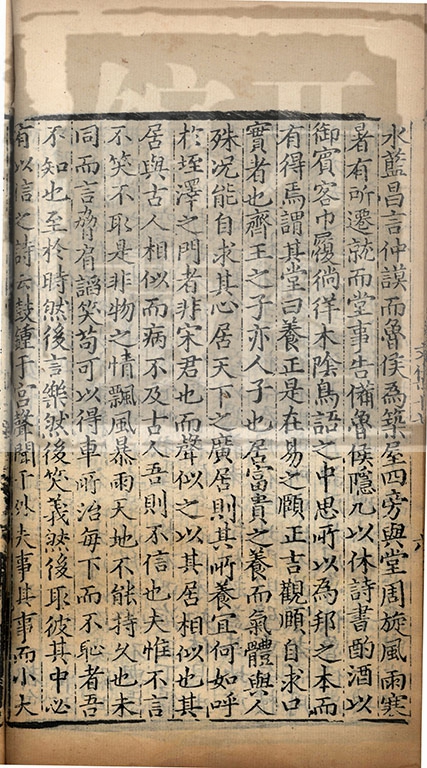 水藍昌言仲謨而魯侯為築屋四旁與堂周旋風雨寒
暑有所遷就而堂事告備魯侯隱几以休詩書酌酒以
御賓客巾履徜徉木陰鳥語之中思所以為邦之本而
有得焉謂其堂曰養正是在易之頤正吉觀頤自求口
實者也齊王之子亦人子也居富貴之養而氣體與人
殊况能自求其心居天下之廣居則其所養宜何如呼
於垤澤之門者非宋君也而聲似之以其居相似也其
居與古人相似而病不及古人吾則不信也夫惟不言
不笑不取是非物之情飄風暴雨天地不能持久也未
同而言脅肩謟笑苟可以得車所治每下而不恥者吾
不知也至於時然後言樂然後笑義然後取彼其中必
有以信之詩云鼓鍾于宮聲聞于外夫事其事而小大
六